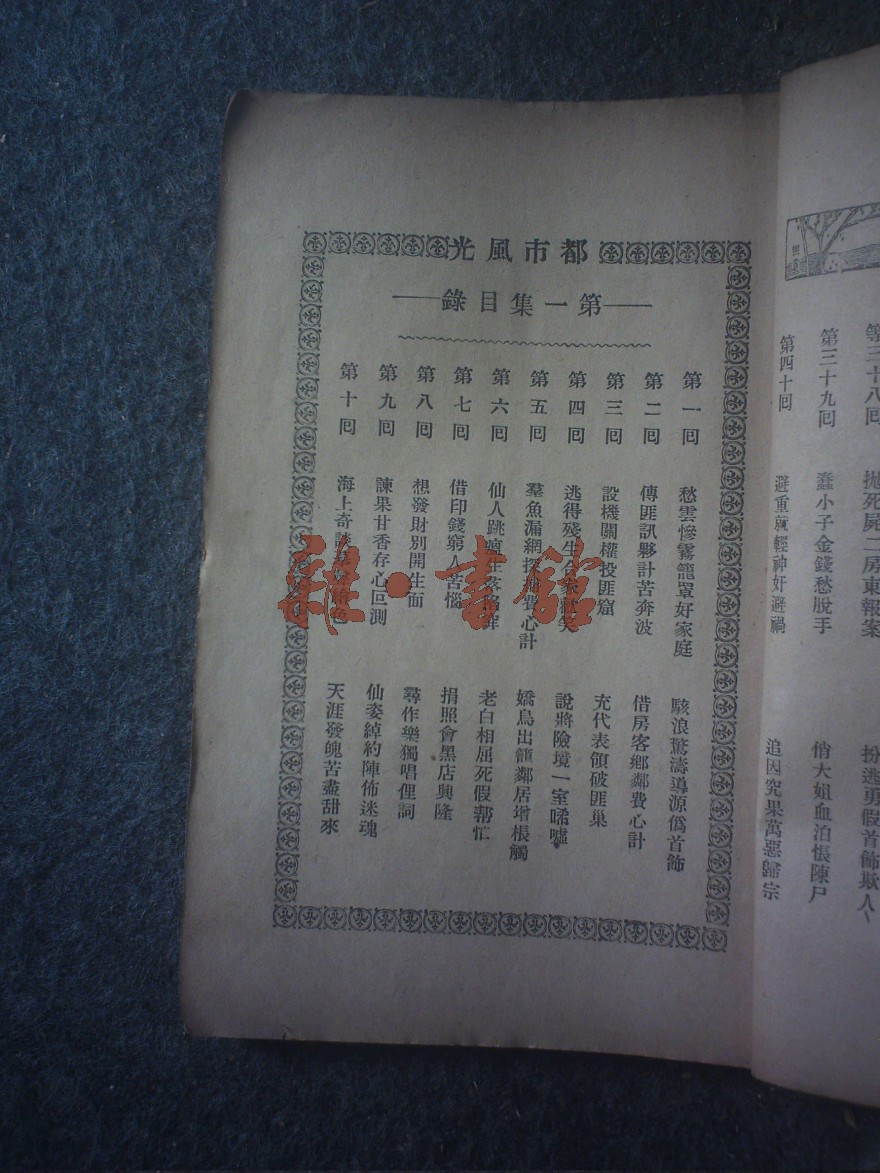 第三十八回 拋死屍二房東報案 扮逃勇假首飾欺人
第三十九回 蠢小子金錢愁脫手 俏大姐血泊悵陳尸
第四十回 避重就輕神奸避禍 追因究果萬惡歸宗
都市風光
第一集目錄
第一回 愁雲慘霧籠罩好家庭 駭浪驚濤導源僞首飾
第二回 傳匪訊夥計苦奔波 借房客鄉鄰費心計
第三回 設機關權投匪窟 充代表領破匪巢
第四回 逃得殘生合家歡笑 說將險境一室唏噓
第五回 羣魚漏網探捕費心計 嬌鳥出籠鄰居增棖觸
第六回 仙人跳瘟生落陷穽 老白相屈死假幫忙
第七回 借印錢窮人苦惱 捐照會黑店興隆
第八回 想發財別開生面 尋作樂獨唱俚詞
第九回 諫果甘香存心叵測 仙姿綽約陣佈迷魂
第十回 海上奇談 色 天涯發魄苦盡甜來
雜·書館